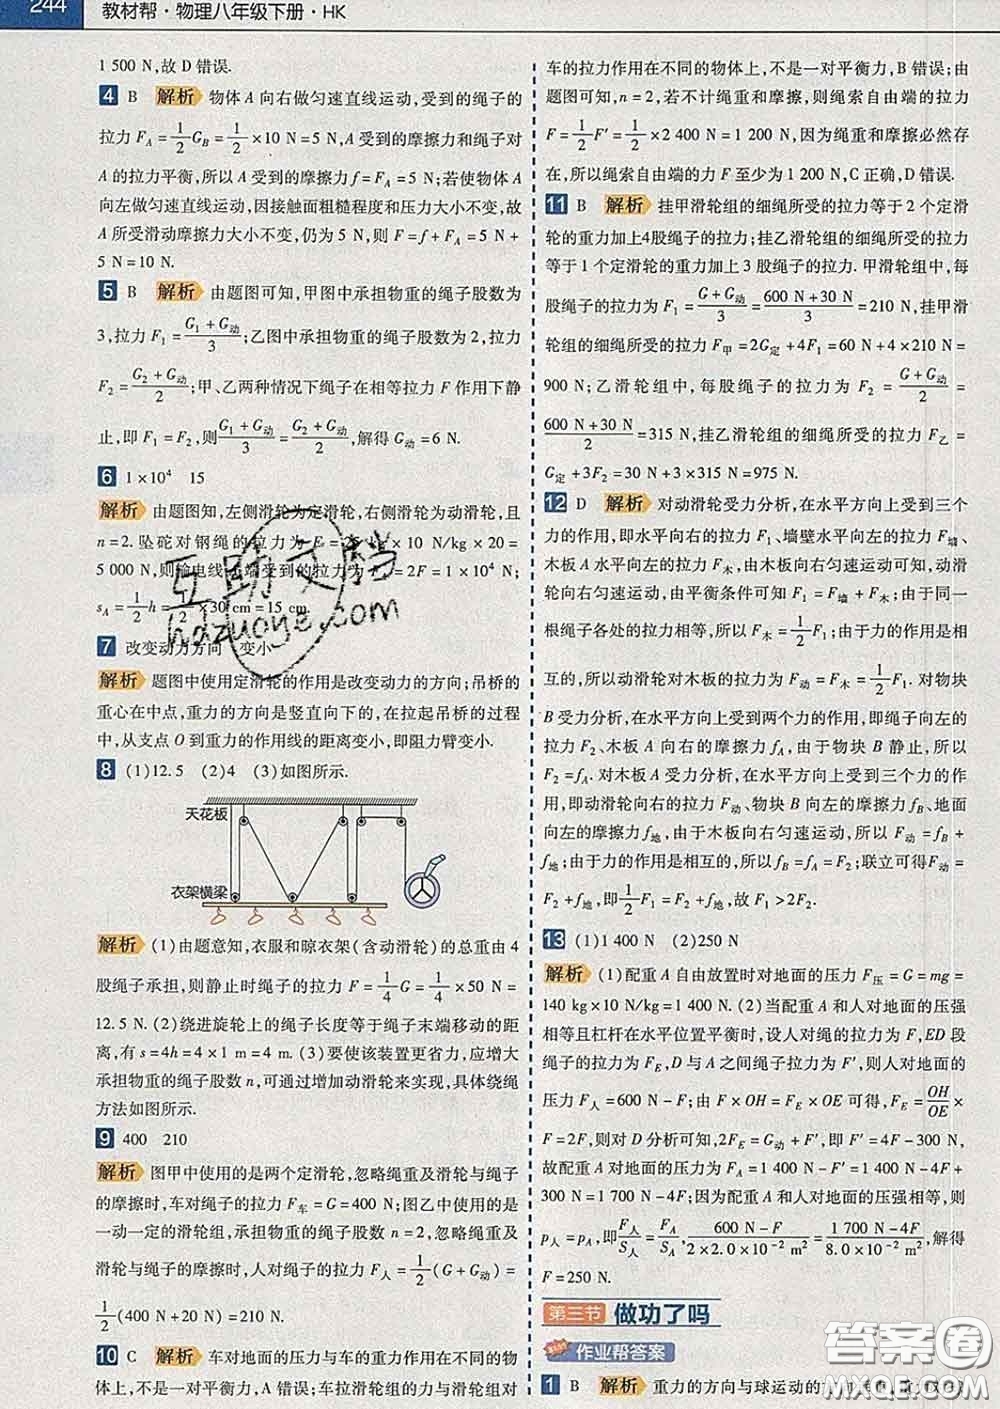 244 教材帮·物理八年级下册·HK
1 500 N,故 D 错误.
4 B 解析 物体 A 向右做匀速直线运动,受到的绳子的
拉力 F_A = 1/2 G_B = 1/2 × 10 N = 5 N, A 受到的摩擦力和绳子对
A 的拉力平衡,所以 A 受到的摩擦力 f = F_A = 5 N;若使物体 A
向左做匀速直线运动,因接触面粗糙程度和压力大小不变,故
A 所受滑动摩擦力大小不变,仍为 5 N,则 F = f + F_A = 5 N +
5 N = 10 N.
5 B 解析 由题图可知,甲图中承担物重的绳子股数为
3,拉力 F₁ = (G₁ + G动)/3;乙图中承担物重的绳子股数为 2,拉力
F₂ = (G₂ + G动)/2;甲、乙两种情况下绳子在相等拉力 F 作用下静
止,即 F₁ = F₂,则 (G₁ + G动)/3 = (G₂ + G动)/2,解得 G动 = 6 N.
6 1×10⁴ 15
解析 由题图知,左侧滑轮为定滑轮,右侧滑轮为动滑轮,且
n = 2.坠砣对钢绳的拉力为 × 10 N/kg × 20 =
5 000 N,则输电线 端受到的拉力 = 2F = 1×10⁴ N;
s_A = 1/2 h = 1/2 × 30 cm = 15 cm.
7 改变动力方向 变小
解析 题图中使用定滑轮的作用是改变动力的方向;吊桥的
重心在中点,重力的方向是竖直向下的,在拉起吊桥的过程
中,从支点 O 到重力的作用线的距离变小,即阻力臂变小.
8 (1)12.5 (2)4 (3)如图所示.
天花板
衣架横梁
解析 (1)由题意知,衣服和晾衣架(含动滑轮)的总重由 4
股绳子承担,则静止时绳子的拉力 F = 1/4 G = 1/4 × 50 N =
12.5 N.(2)绕进旋轮上的绳子长度等于绳子末端移动的距
离,有 s = 4h = 4 × 1 m = 4 m.(3)要使该装置更省力,应增大
承担物重的绳子股数 n,可通过增加动滑轮来实现,具体绕绳
方法如图所示.
9 400 210
解析 图甲中使用的是两个定滑轮,忽略绳重及滑轮与绳子
的摩擦时,车对绳子的拉力 F车 = G = 400 N;图乙中使用的是
一动一定的滑轮组,承担物重的绳子股数 n = 2,忽略绳重及
滑轮与绳子的摩擦时,人对绳子的拉力 F人 = 1/2 (G + G动) =
1/2 (400 N + 20 N) = 210 N.
10 C 解析 车对地面的压力与车的重力作用在不同的物
体上,不是一对平衡力,A 错误;车拉滑轮组的力与绳子对
车的拉力作用在不同的物体上,不是一对平衡力,B 错误;由
题图可知,n = 2,若不计绳重和摩擦,则绳索自由端的拉力
F = 1/2 F′ = 1/2 × 2 400 N = 1 200 N,因为绳重和摩擦必然存
在,所以绳索自由端的拉力 F 至少为 1 200 N,C 正确,D 错误.
11 B 解析 挂甲滑轮组的细绳所受的拉力等于 2 个定滑
轮的重力加上4股绳子的拉力;挂乙滑轮组的细绳所受的拉力
等于 1 个定滑轮的重力加上 3 股绳子的拉力.甲滑轮组中,每
股绳子的拉力为 F₁ = (G + G动)/3 = (600 N + 30 N)/3 = 210 N,挂甲滑
轮组的细绳所受的拉力 F甲 = 2G定 + 4F₁ = 60 N + 4 × 210 N =
900 N;乙滑轮组中,每股绳子的拉力为 F₂ = (G + G动)/2 =
(600 N + 30 N)/2 = 315 N,挂乙滑轮组的细绳所受的拉力 F乙 =
G定 + 3F₂ = 30 N + 3 × 315 N = 975 N.
12 D 解析 对动滑轮受力分析,在水平方向上受到三个
力的作用,即水平向右的拉力 F₁、墙壁水平向左的拉力 F墙、
木板 A 水平向左的拉力 F木,由木板向右匀速运动可知,动滑
轮向右匀速运动,由平衡条件可知 F₁ = F墙 + F木;由于同一
根绳子各处的拉力相等,所以 F木 = 1/2 F₁;由于力的作用是相
互的,所以动滑轮对木板的拉力为 F动 = F木 = 1/2 F₁.对物块
B 受力分析,在水平方向上受到两个力的作用,即绳子向左的
拉力 F₂、木板 A 向右的摩擦力 f_A,由于物块 B 静止,所以
F₂ = f_A.对木板 A 受力分析,在水平方向上受到三个力的作
用,即动滑轮向右的拉力 F动、物块 B 向左的摩擦力 f_B、地面
向左的摩擦力 f地,由于木板向右匀速运动,所以 F动 = f_B +
f地;由于力的作用是相互的,所以 f_B = f_A = F₂;联立可得 F动 =
F₂ + f地,即 1/2 F₁ = F₂ + f地,故 F₁ > 2F₂.
13 (1)1 400 N (2)250 N
解析 (1)配重 A 自由放置时对地面的压力 F压 = G = mg =
140 kg×10 N/kg = 1 400 N.(2)当配重 A 和人对地面的压强
相等且杠杆在水平位置平衡时,设人对绳的拉力为 F,ED 段
绳子的拉力为 F_E,D 与 A 之间绳子拉力为 F′,则人对地面的
压力 F人 = 600 N - F;由 F × OH = F_E × OE 可得,F_E = OH/OE ×
F = 2F,则对 D 分析可知,2F_E = G动 + F′,即 F′ = 4F - 300 N,
故配重 A 对地面的压力为 F_A = 1 400 N - F′ = 1 400 N - 4F +
300 N = 1 700 N - 4F;因为配重 A 和人对地面的压强相等,则
p人 = p_A,即 F人/S人 = F_A/S_A,(600 N - F)/(2×2.0×10⁻² m²) = (1 700 N - 4F)/(8.0×10⁻² m²),解得
F = 250 N.
第三节 做功了吗
作业帮答案
1 B 解析 重力的方向与球运动的
互助文档
hdzuoye.com
答案圈
MXQE.COM